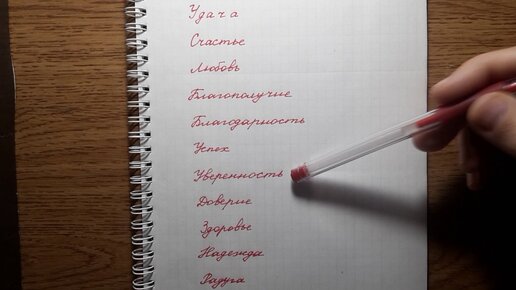 Удача
Счастье
Любовь
Благополучие
Благодарность
Успех
Уверенность
Доверие
Здоровье
Надежда
Радуга